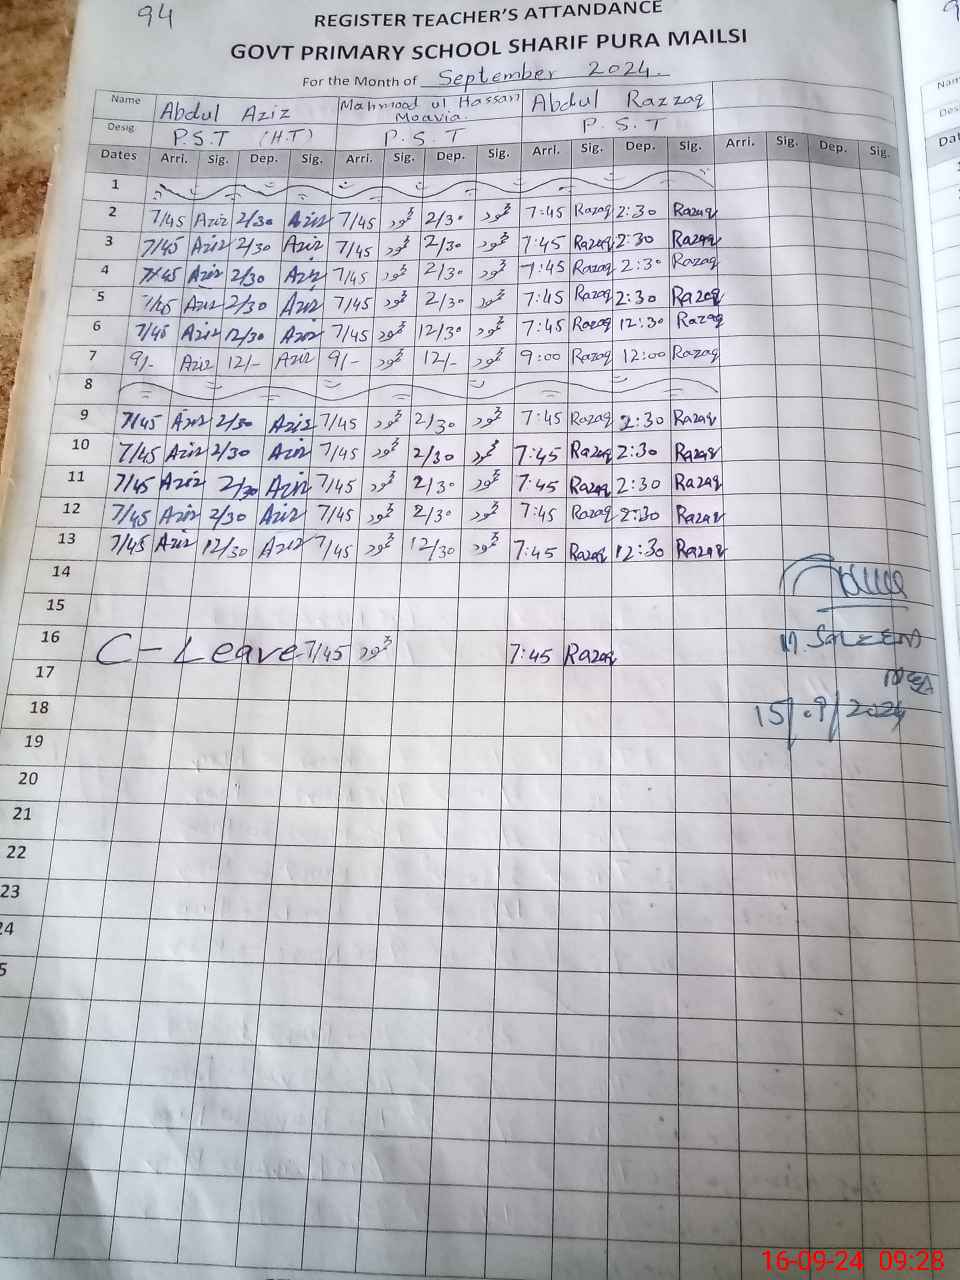 94
REGISTER TEACHER'S ATTANDANCE
GOVT PRIMARY SCHOOL SHARIF PURA MAILSI
For the Month of September 2024.
Name Abdul Aziz Mahmood ul Hassan Moavia. Abdul Razzaq
Desig. P.S.T (H.T) P.S.T P.S.T
Dates Arri. Sig. Dep. Sig. Arri. Sig. Dep. Sig. Arri. Sig. Dep. Sig. Arri. Sig. Dep. Sig.
1
2 7/45 Aziz 2/30 Aziz 7/45 محمود 2/30 محمود 7:45 Razaq 2:30 Razaq
3 7/45 Aziz 2/30 Aziz 7/45 محمود 2/30 محمود 7:45 Razaq 2:30 Razaq
4 7/45 Aziz 2/30 Aziz 7/45 محمود 2/30 محمود 7:45 Razaq 2:30 Razaq
5 7/45 Aziz 2/30 Aziz 7/45 محمود 2/30 محمود 7:45 Razaq 2:30 Razaq
6 7/45 Aziz 12/30 Aziz 7/45 محمود 12/30 محمود 7:45 Razaq 12:30 Razaq
7 9/- Aziz 12/- Aziz 9/- محمود 12/- محمود 9:00 Razaq 12:00 Razaq
8
9 7/45 Aziz 2/30 Aziz 7/45 محمود 2/30 محمود 7:45 Razaq 2:30 Razaq
10 7/45 Aziz 2/30 Aziz 7/45 محمود 2/30 محمود 7:45 Razaq 2:30 Razaq
11 7/45 Aziz 2/30 Aziz 7/45 محمود 2/30 محمود 7:45 Razaq 2:30 Razaq
12 7/45 Aziz 2/30 Aziz 7/45 محمود 2/30 محمود 7:45 Razaq 2:30 Razaq
13 7/45 Aziz 12/30 Aziz 7/45 محمود 12/30 محمود 7:45 Razaq 12:30 Razaq
14
15
16 C-Leave 7/45 محمود 7:45 Razaq
M. SALEEM
17
18
15/.9/2024
19
20
21
22
23
24
5
16-09-24 09:28